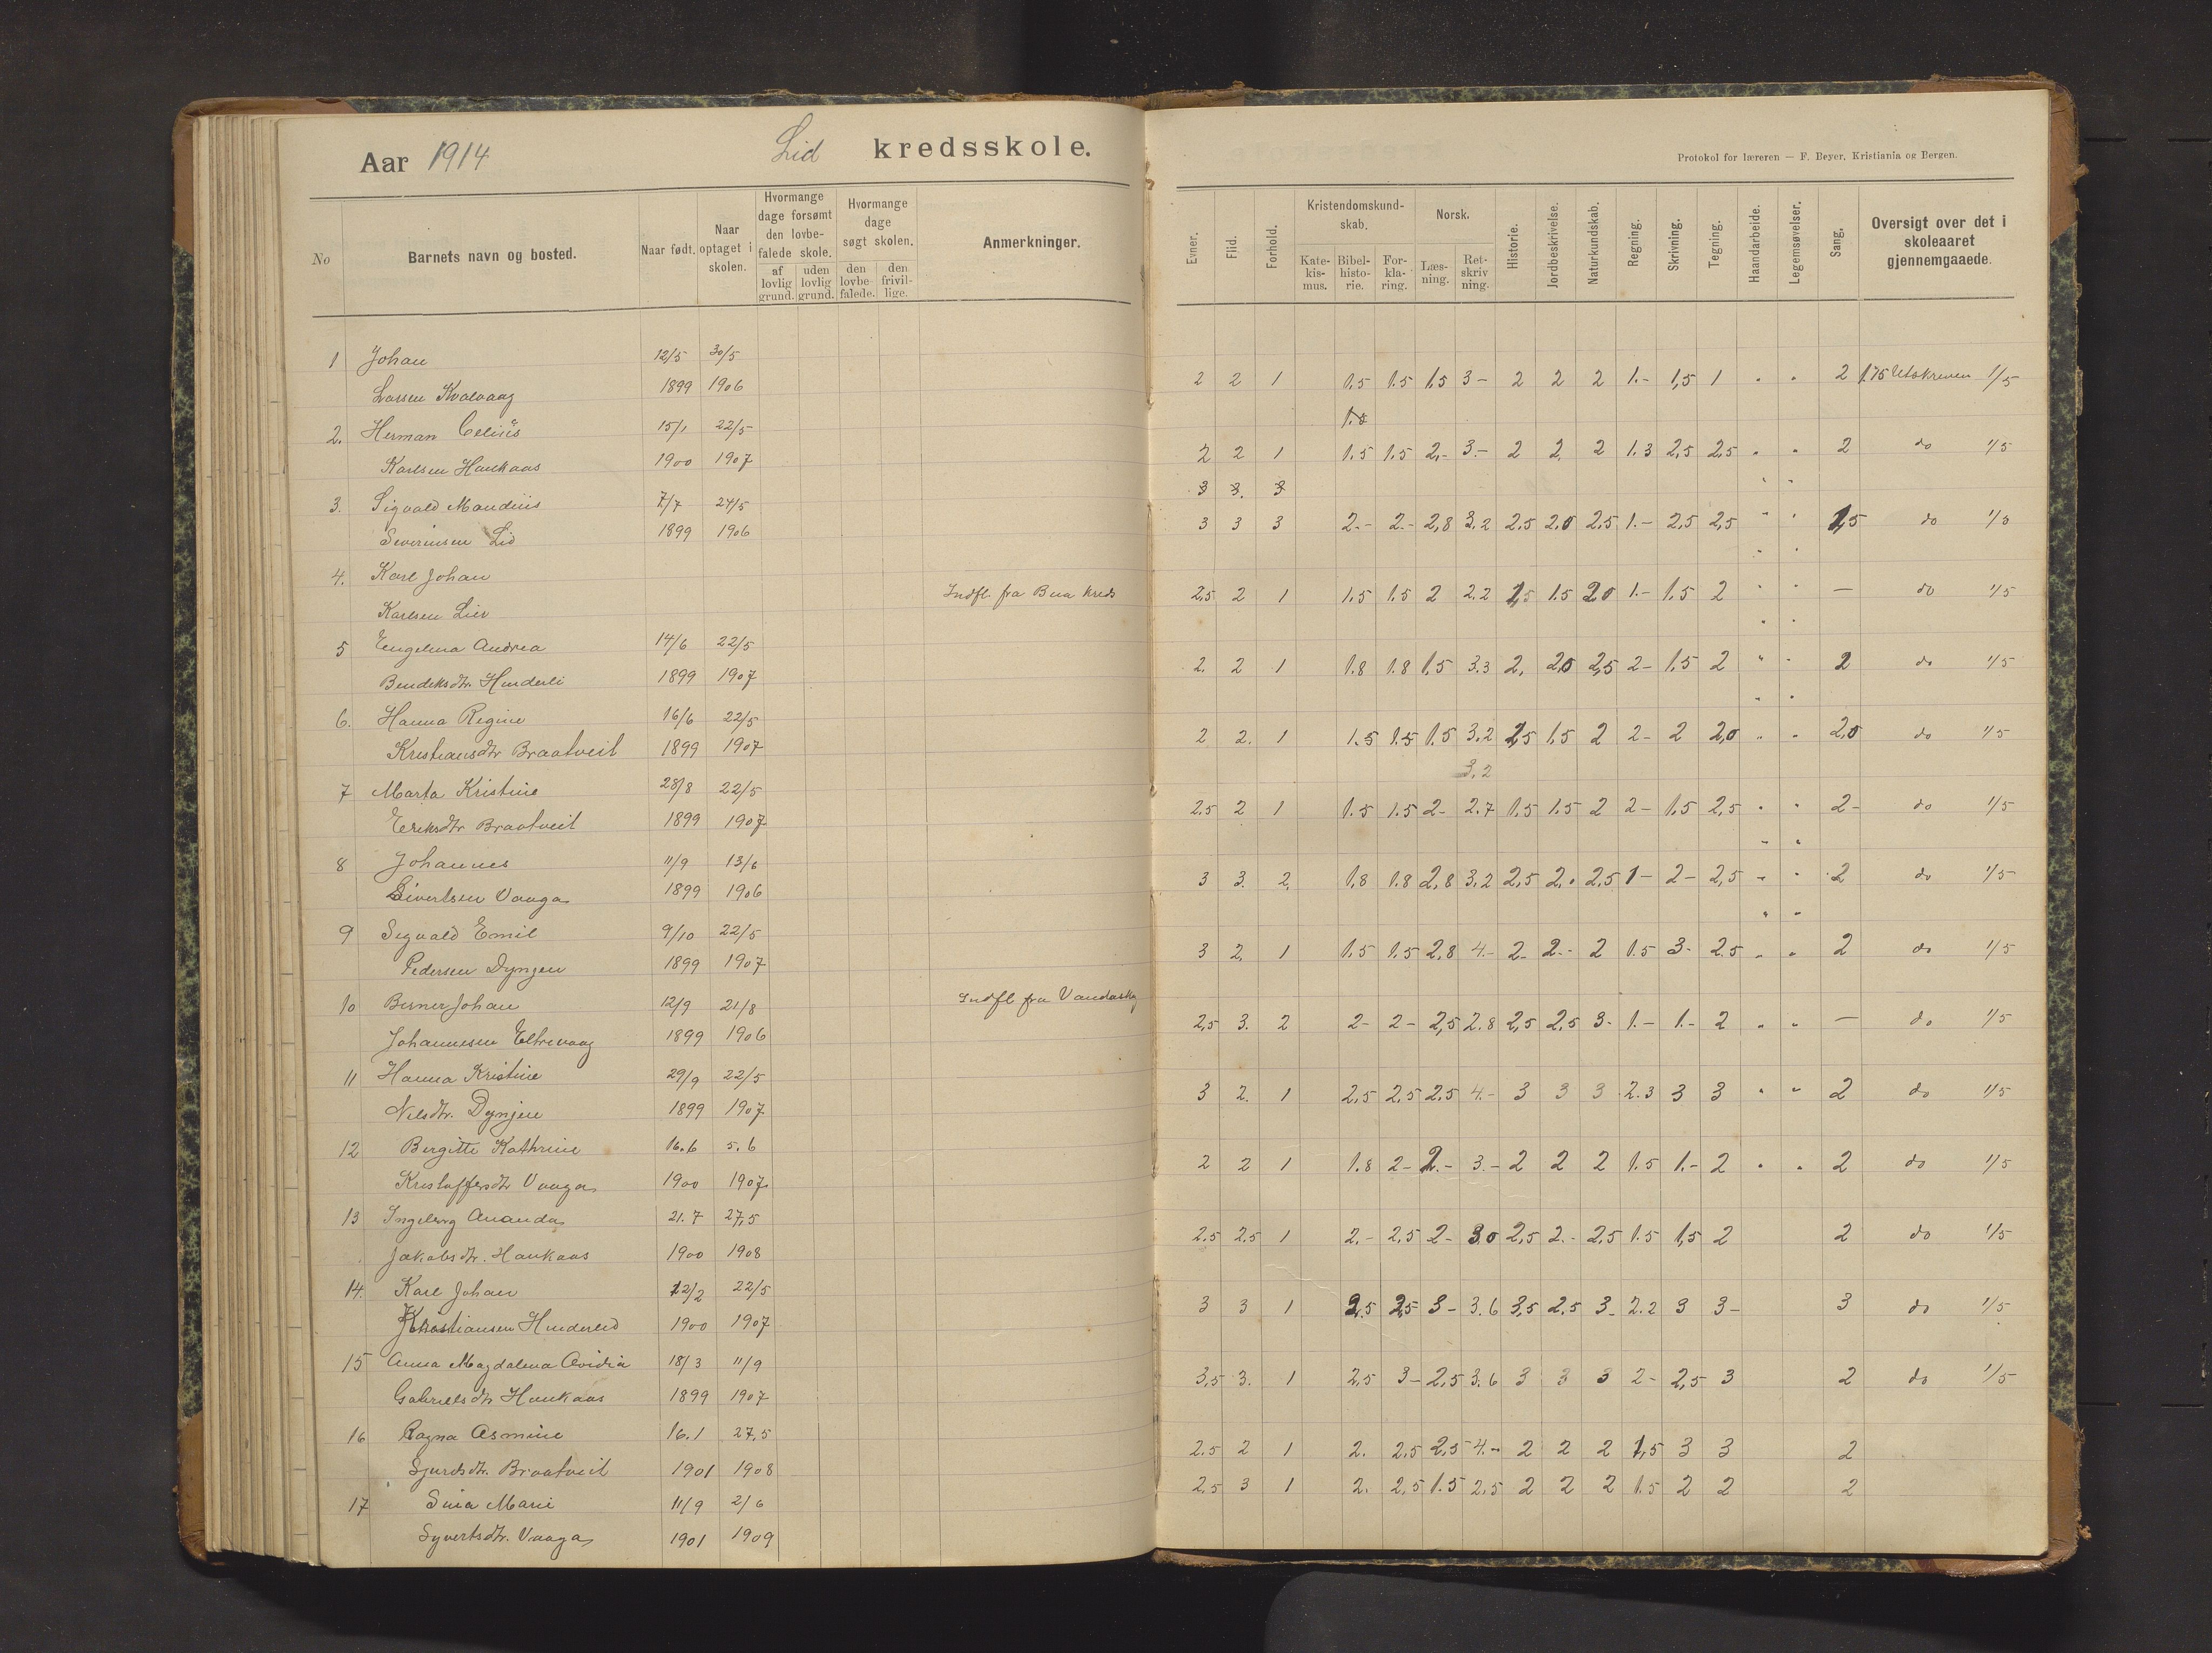 Aar 1914 Lid kredsskole.
Protokol for læreren — F. Beyer, Kristiania og Bergen.
No Barnets navn og bosted. Naar født. Naar optaget i skolen. Hvormange dage forsømt den lovbefalede skole. af lovlig grund. uden lovlig grund. Hvormange dage søgt skolen. den lovbefalede. den frivillige. Anmerkninger.
Evner. Flid. Forhold. Kristendomskundskab. Katekismus. Bibelhistorie. Forklaring. Norsk. Læsning. Retskrivning. Historie. Jordbeskrivelse. Naturkundskab. Regning. Skrivning. Tegning. Haandarbeide. Legemsøvelser. Sang. Oversigt over det i skoleaaret gjennemgaaede.
1 Johan 12/5 30/5
Larsen Kvalvaag 1899 1906 2 2 1 1.5 1.5 1.5 3- 2 2 2 1.- 1,5 1 " " 2 1.75 Utskreven 1/5
2. Herman 15/1 22/5
Karlsen Haukaas 1900 1907 2 2 1 1.5 1.5 2.- 3.- 2 2. 2 1.3 2,5 2,5 " " 2 do 1/5
3. Sigvald Mandius 7/7 24/5 3 3. 3
Severinsen Lid 1899 1906 3 3 3 2.- 2.- 2,8 3.2 2,5 2,0 2,5 1.- 2,5 2,5 " " 1,5 do 1/5
4. Karl Johan
Karlsen Lier Indfl. fra Bua kreds 2,5 2 1 1.5 1.5 2 2.2 1,5 1.5 2.0 1.- 1.5 2 " " — do 1/5
5 Engelina Andrea 14/6 22/5
Bendiksdtr. Hinderli 1899 1907 2. 2 1 1.8 1.8 1,5 3.3 2, 2,0 2,5 2- 1.5 2 " " 2 do 1/5
6. Hanna Regine 16/6 22/5
Kristiansdtr Braatveit 1899 1907 2 2. 1 1.5 1.5 1.5 3.2 1,5 1,5 2 2- 2 2,0 " " 2,0 do 1/5
3,2
7 Marta Kristine 28/8 22/5
Eriksdtr Braatveit 1899 1907 2,5 2 1 1.5 1.5 2- 2.7 1,5 1.5 2 2- 1,5 2,5 " " 2- do 1/5
8 Johannes 11/9 13/6
Sivertsen Vaaga 1899 1906 3 3. 2. 1,8 1.8 2,8 3.2 2,5 2.0 2,5 1- 2- 2,5 " " 2 do 1/5
9 Sigvald Emil 9/10 22/5
Pedersen Dyngen 1899 1907 3 2. 1 1,5 1,5 2,8 4.- 2- 2.- 2 1.5 3- 2.5 " " 2 do 1/5
10 Berner Johan 12/9 21/8
Johannesen Eltrevaag 1899 1906 Indfl fra Vandaskog 2,5 3. 2 2- 2- 2,5 2.8 2,5 2,5 3- 1.- 1.- 2 " " — do 1/5
11 Hanna Kristine 29/9 22/5
Nilsdtr. Dynjen 1899 1907 3 2. 1 2,5 2,5 2.5 4.- 3 3 3 2.3 3 3 " " 2 do 1/5
12 Bergitte Kathrine 16.6 5.6
Kristoffersdtr Vaaga 1900 1907 2 2 1 1.8 2- 2.- 3.- 2 2 2 1.5 1.- 2 " " 2 do 1/5
13 Ingeborg Ananda 21.7 27,5
Jakobsdtr. Haukaas 1900 1908 2.5 2.5 1 2.- 2,5 2- 3.0 2,5 2.- 2,5 1.5 1,5 2 2 do 1/5
14. Karl Johan 12/2 22/5
Kristiansen Hinderlid 1900 1907 3 3 1 2,5 2,5 3- 3.6 3,5 2,5 3- 2.2 3 3- 3 do 1/5
15 Anna Magdalena Ovidia 18/3 11/9
Gabrielsdtr Haukaas 1899 1907 3,5 3. 1 2,5 3- 2,5 3.6 3 3 3 2- 2,5 3 2 do 1/5
16 Ragna Asmine 16.1 27,5
Sjurdsdtr. Braatveit 1901 1908 2.5 2 1 2. 2,5 2,5 4.- 2 2 2 1,5 3 3 2
17 Sina Marie 11/9 2/6
Syvertsdtr. Vaaga 1901 1909 2.5 3 1 2. 2,5 1.5 2,5 2 2 2 1.5 2 2 2